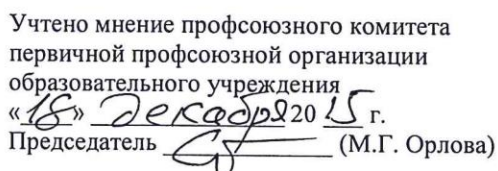 Учтено мнение профсоюзного комитета
первичной профсоюзной организации
образовательного учреждения
«18» декабря 20 15 г.
Председатель (М.Г. Орлова)